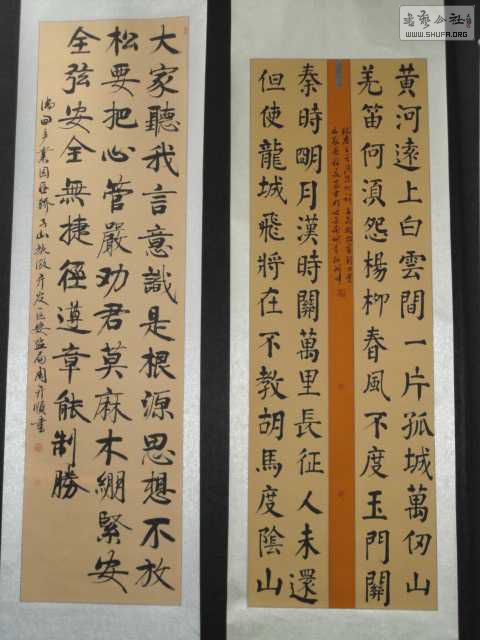 書藝公社
WWW.SHUFA.ORG
黄河遠上白雲間一片孤城萬仞山
羌笛何湏怨楊柳春風不度玉門關
秦時明月漢時關萬里長征人未還
但使龍城飛將在不教胡馬度陰山
大家聽我言意識是根源思想不放
松要把心管嚴劝君莫麻木綳緊安
全弦安全無捷徑遵章能制勝